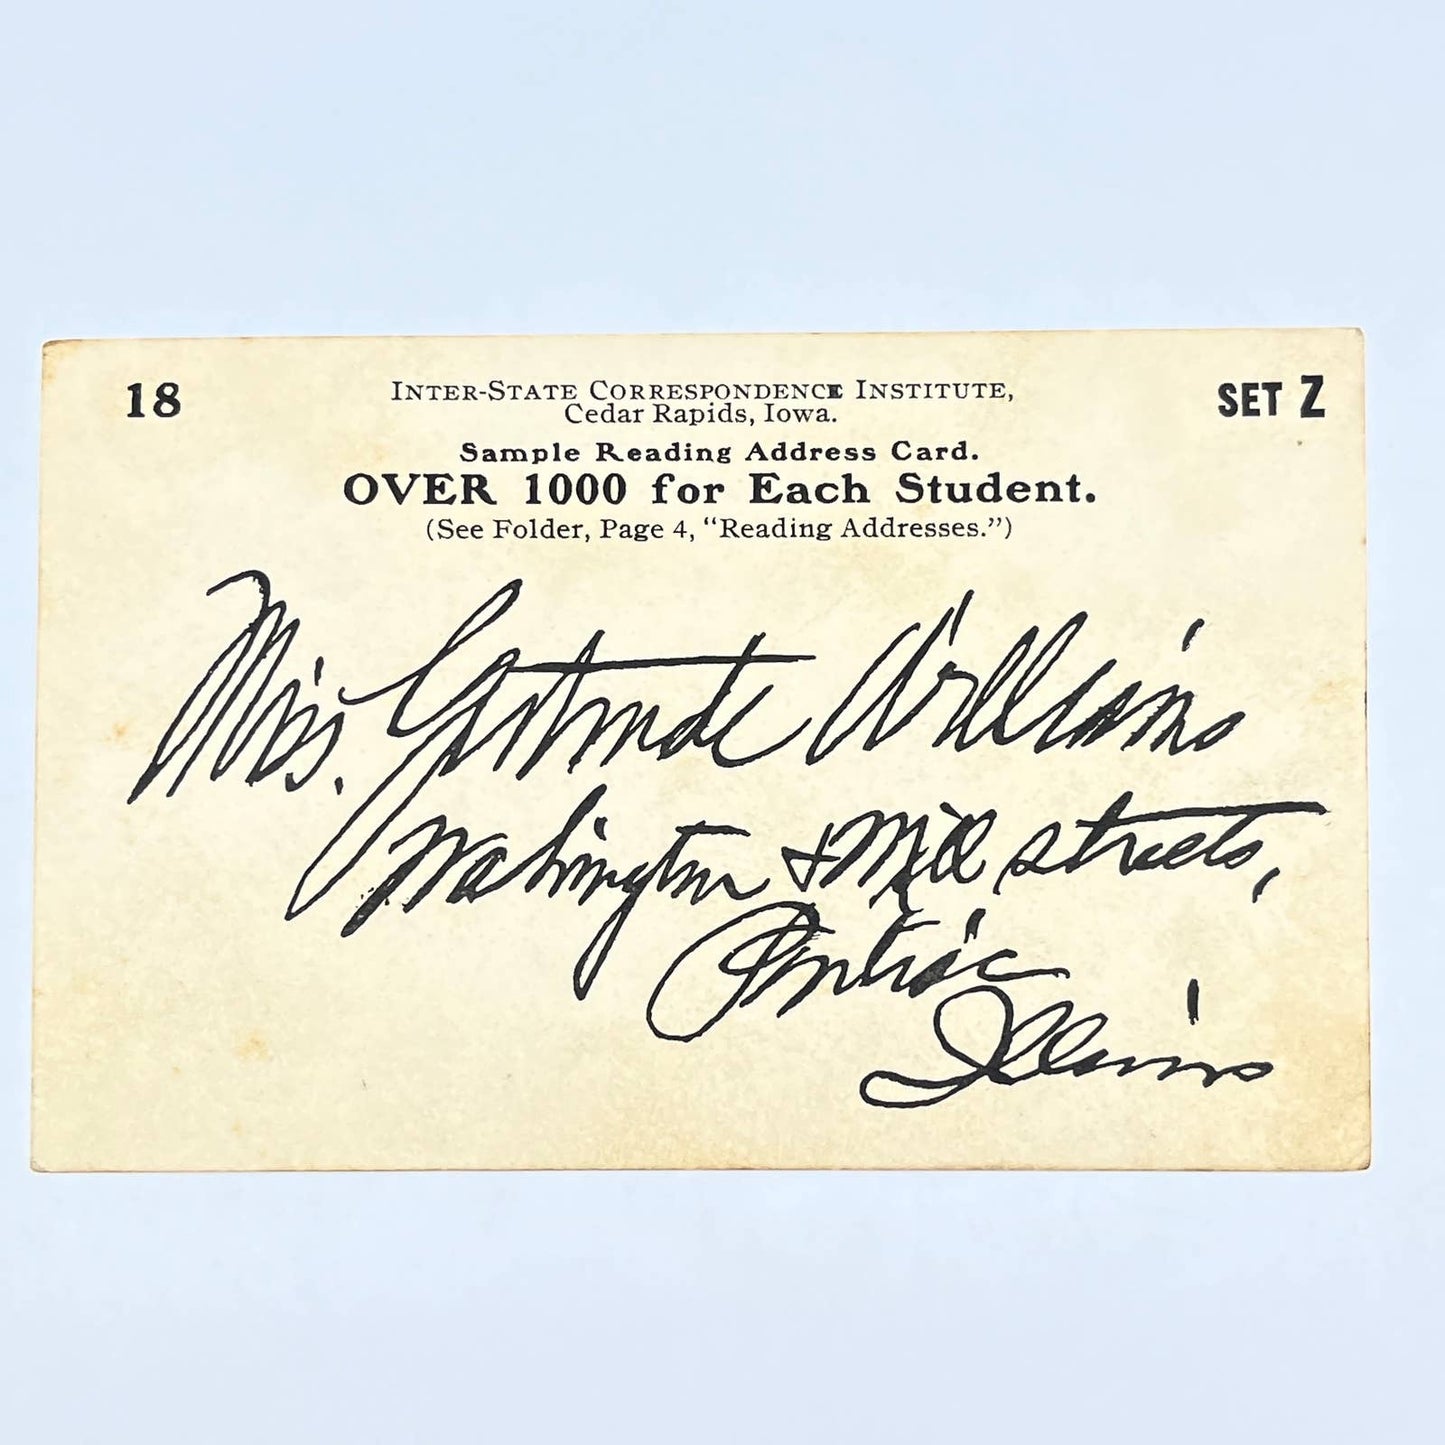 18
INTER-STATE CORRESPONDENCE INSTITUTE,
SET Z
Cedar Rapids, Iowa.
Sample Reading Address Card.
OVER 1000 for Each Student.
(See Folder, Page 4, “Reading Addresses.”)
Miss. Gertrude Williams
Washington & Mill streets,
Pontiac
Illinois